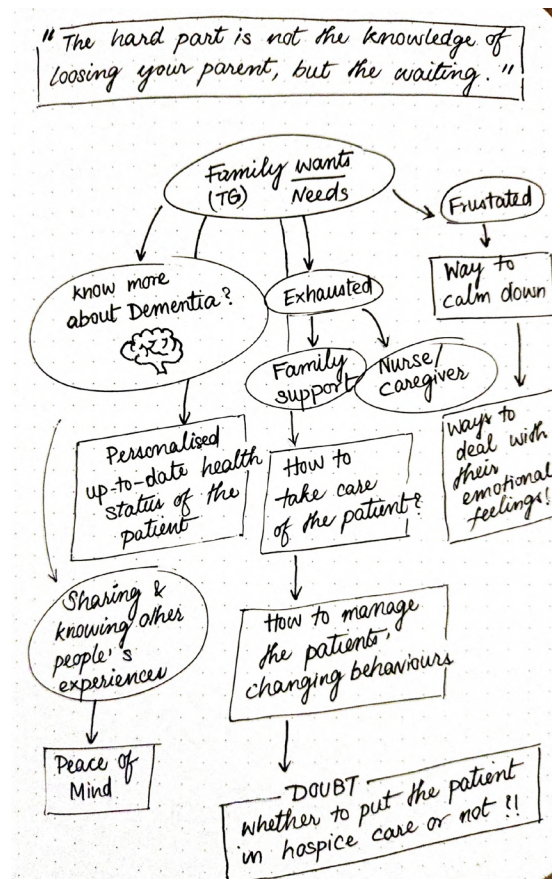 "The hard part is not the knowledge of
loosing your parent, but the waiting."
Family wants
(TG) Needs
Frustated
Way to
calm down
Ways to
deal with
their
emotional
feelings!
know more
about Dementia?
Exhausted
Family
support
Nurse/
caregiver
Personalised
up-to-date health
status of the
patient
How to
take care
of the patient?
Sharing &
knowing other
people's
experiences
How to manage
the patients'
changing behaviours
Peace of
Mind
DOUBT
whether to put the patient
in hospice care or not ?!